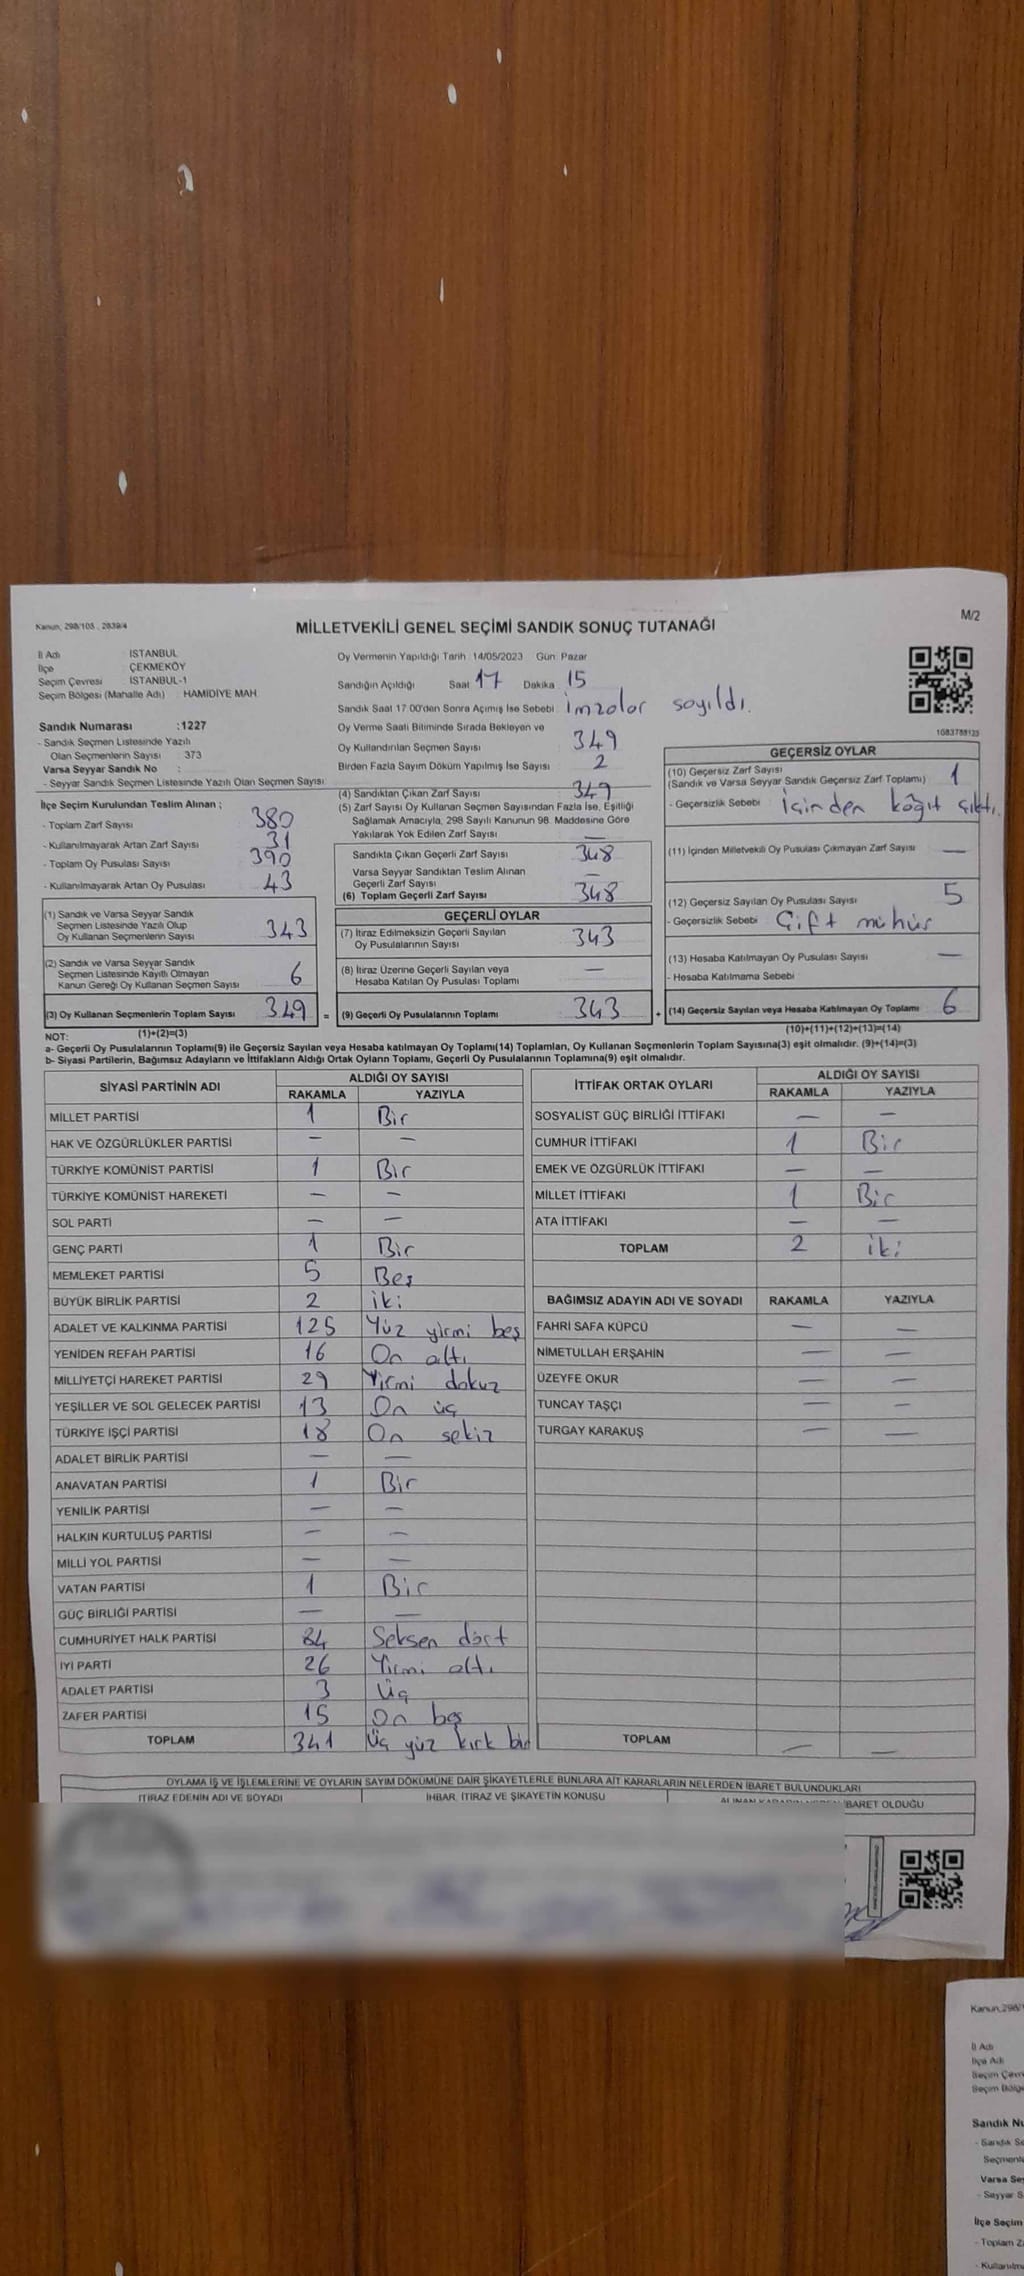 Kanun, 298/105, 2839/4
MİLLETVEKİLİ GENEL SEÇİMİ SANDIK SONUÇ TUTANAĞI
M/2
İl Adı İSTANBUL
İlçe ÇEKMEKÖY
Seçim Çevresi İSTANBUL-1
Seçim Bölgesi (Mahalle Adı) : HAMİDİYE MAH.
Oy Vermenin Yapıldığı Tarih : 14/05/2023 Gün: Pazar
Sandığın Açıldığı Saat 17 Dakika 15
Sandık Saat 17.00'den Sonra Açımış İse Sebebi: İmzalar sayıldı.
Sandık Numarası :1227
- Sandık Seçmen Listesinde Yazılı
Olan Seçmenlerin Sayısı : 373
Varsa Seyyar Sandık No :
- Seyyar Sandık Seçmen Listesinde Yazılı Olan Seçmen Sayısı:
Oy Verme Saati Bitiminde Sırada Bekleyen ve
Oy Kullandırılan Seçmen Sayısı 349
Birden Fazla Sayım Döküm Yapılmış İse Sayısı 2
İlçe Seçim Kurulundan Teslim Alınan ;
- Toplam Zarf Sayısı 380
- Kullanılmayarak Artan Zarf Sayısı 31
- Toplam Oy Pusulası Sayısı 390
- Kullanılmayarak Artan Oy Pusulası 43
(1) Sandık ve Varsa Seyyar Sandık
Seçmen Listesinde Yazılı Olup
Oy Kullanan Seçmenlerin Sayısı 343
(2) Sandık ve Varsa Seyyar Sandık
Seçmen Listesinde Kayıtlı Olmayan
Kanun Gereği Oy Kullanan Seçmen Sayısı 6
(3) Oy Kullanan Seçmenlerin Toplam Sayısı 349 =
(4) Sandıktan Çıkan Zarf Sayısı 349
(5) Zarf Sayısı Oy Kullanan Seçmen Sayısından Fazla İse, Eşitliği
Sağlamak Amacıyla, 298 Sayılı Kanunun 98. Maddesine Göre
Yakılarak Yok Edilen Zarf Sayısı —
Sandıkta Çıkan Geçerli Zarf Sayısı 348
Varsa Seyyar Sandıktan Teslim Alınan
Geçerli Zarf Sayısı —
(6) Toplam Geçerli Zarf Sayısı 348
GEÇERLİ OYLAR
(7) İtiraz Edilmeksizin Geçerli Sayılan
Oy Pusulalarının Sayısı 343
(8) İtiraz Üzerine Geçerli Sayılan veya
Hesaba Katılan Oy Pusulası Toplamı —
(9) Geçerli Oy Pusulalarının Toplamı 343 +
GEÇERSİZ OYLAR
(10) Geçersiz Zarf Sayısı
(Sandık ve Varsa Seyyar Sandık Geçersiz Zarf Toplamı) 1
- Geçersizlik Sebebi : İçinden kâğıt çıktı.
(11) İçinden Milletvekili Oy Pusulası Çıkmayan Zarf Sayısı —
(12) Geçersiz Sayılan Oy Pusulası Sayısı 5
- Geçersizlik Sebebi : Çift mühür
(13) Hesaba Katılmayan Oy Pusulası Sayısı —
- Hesaba Katılmama Sebebi
(14) Geçersiz Sayılan veya Hesaba Katılmayan Oy Toplamı 6
NOT: (1)+(2)=(3) (10)+(11)+(12)+(13)=(14)
a- Geçerli Oy Pusulalarının Toplamı(9) ile Geçersiz Sayılan veya Hesaba katılmayan Oy Toplamı(14) Toplamları, Oy Kullanan Seçmenlerin Toplam Sayısına(3) eşit olmalıdır. (9)+(14)=(3)
b- Siyasi Partilerin, Bağımsız Adayların ve İttifakların Aldığı Ortak Oyların Toplamı, Geçerli Oy Pusulalarının Toplamına(9) eşit olmalıdır.
SİYASİ PARTİNİN ADI ALDIĞI OY SAYISI
RAKAMLA YAZIYLA
MİLLET PARTİSİ 1 Bir
HAK VE ÖZGÜRLÜKLER PARTİSİ — —
TÜRKİYE KOMÜNİST PARTİSİ 1 Bir
TÜRKİYE KOMÜNİST HAREKETİ — —
SOL PARTİ — —
GENÇ PARTİ 1 Bir
MEMLEKET PARTİSİ 5 Beş
BÜYÜK BİRLİK PARTİSİ 2 iki
ADALET VE KALKINMA PARTİSİ 125 Yüz yirmi beş
YENİDEN REFAH PARTİSİ 16 On altı
MİLLİYETÇİ HAREKET PARTİSİ 29 Yirmi dokuz
YEŞİLLER VE SOL GELECEK PARTİSİ 13 On üç
TÜRKİYE İŞÇİ PARTİSİ 18 On sekiz
ADALET BİRLİK PARTİSİ — —
ANAVATAN PARTİSİ 1 Bir
YENİLİK PARTİSİ — —
HALKIN KURTULUŞ PARTİSİ — —
MİLLİ YOL PARTİSİ — —
VATAN PARTİSİ 1 Bir
GÜÇ BİRLİĞİ PARTİSİ — —
CUMHURİYET HALK PARTİSİ 84 Seksen dört
İYİ PARTİ 26 Yirmi altı
ADALET PARTİSİ 3 Üç
ZAFER PARTİSİ 15 On beş
TOPLAM 341 Üç yüz kırk bir
İTTİFAK ORTAK OYLARI ALDIĞI OY SAYISI
RAKAMLA YAZIYLA
SOSYALİST GÜÇ BİRLİĞİ İTTİFAKI — —
CUMHUR İTTİFAKI 1 Bir
EMEK VE ÖZGÜRLÜK İTTİFAKI — —
MİLLET İTTİFAKI 1 Bir
ATA İTTİFAKI — —
TOPLAM 2 iki
BAĞIMSIZ ADAYIN ADI VE SOYADI RAKAMLA YAZIYLA
FAHRİ SAFA KÜPCÜ — —
NİMETULLAH ERŞAHİN — —
ÜZEYFE OKUR — —
TUNCAY TAŞÇI — —
TURGAY KARAKUŞ — —
TOPLAM — —
OYLAMA İŞ VE İŞLEMLERİNE VE OYLARIN SAYIM DÖKÜMÜNE DAİR ŞİKAYETLERLE BUNLARA AİT KARARLARIN NELERDEN İBARET BULUNDUKLARI
İTİRAZ EDENİN ADI VE SOYADI İHBAR, İTİRAZ VE ŞİKAYETİN KONUSU İBARET OLDUĞU
Kanun, 298/
İl Adı
İlçe Adı
Seçim Çevre
Seçim Bölge
Sandık Nu
- Sandık Se
Seçmenle
Varsa Sey
- Seyyar S
İlçe Seçim
- Toplam Za
- Kullanılma